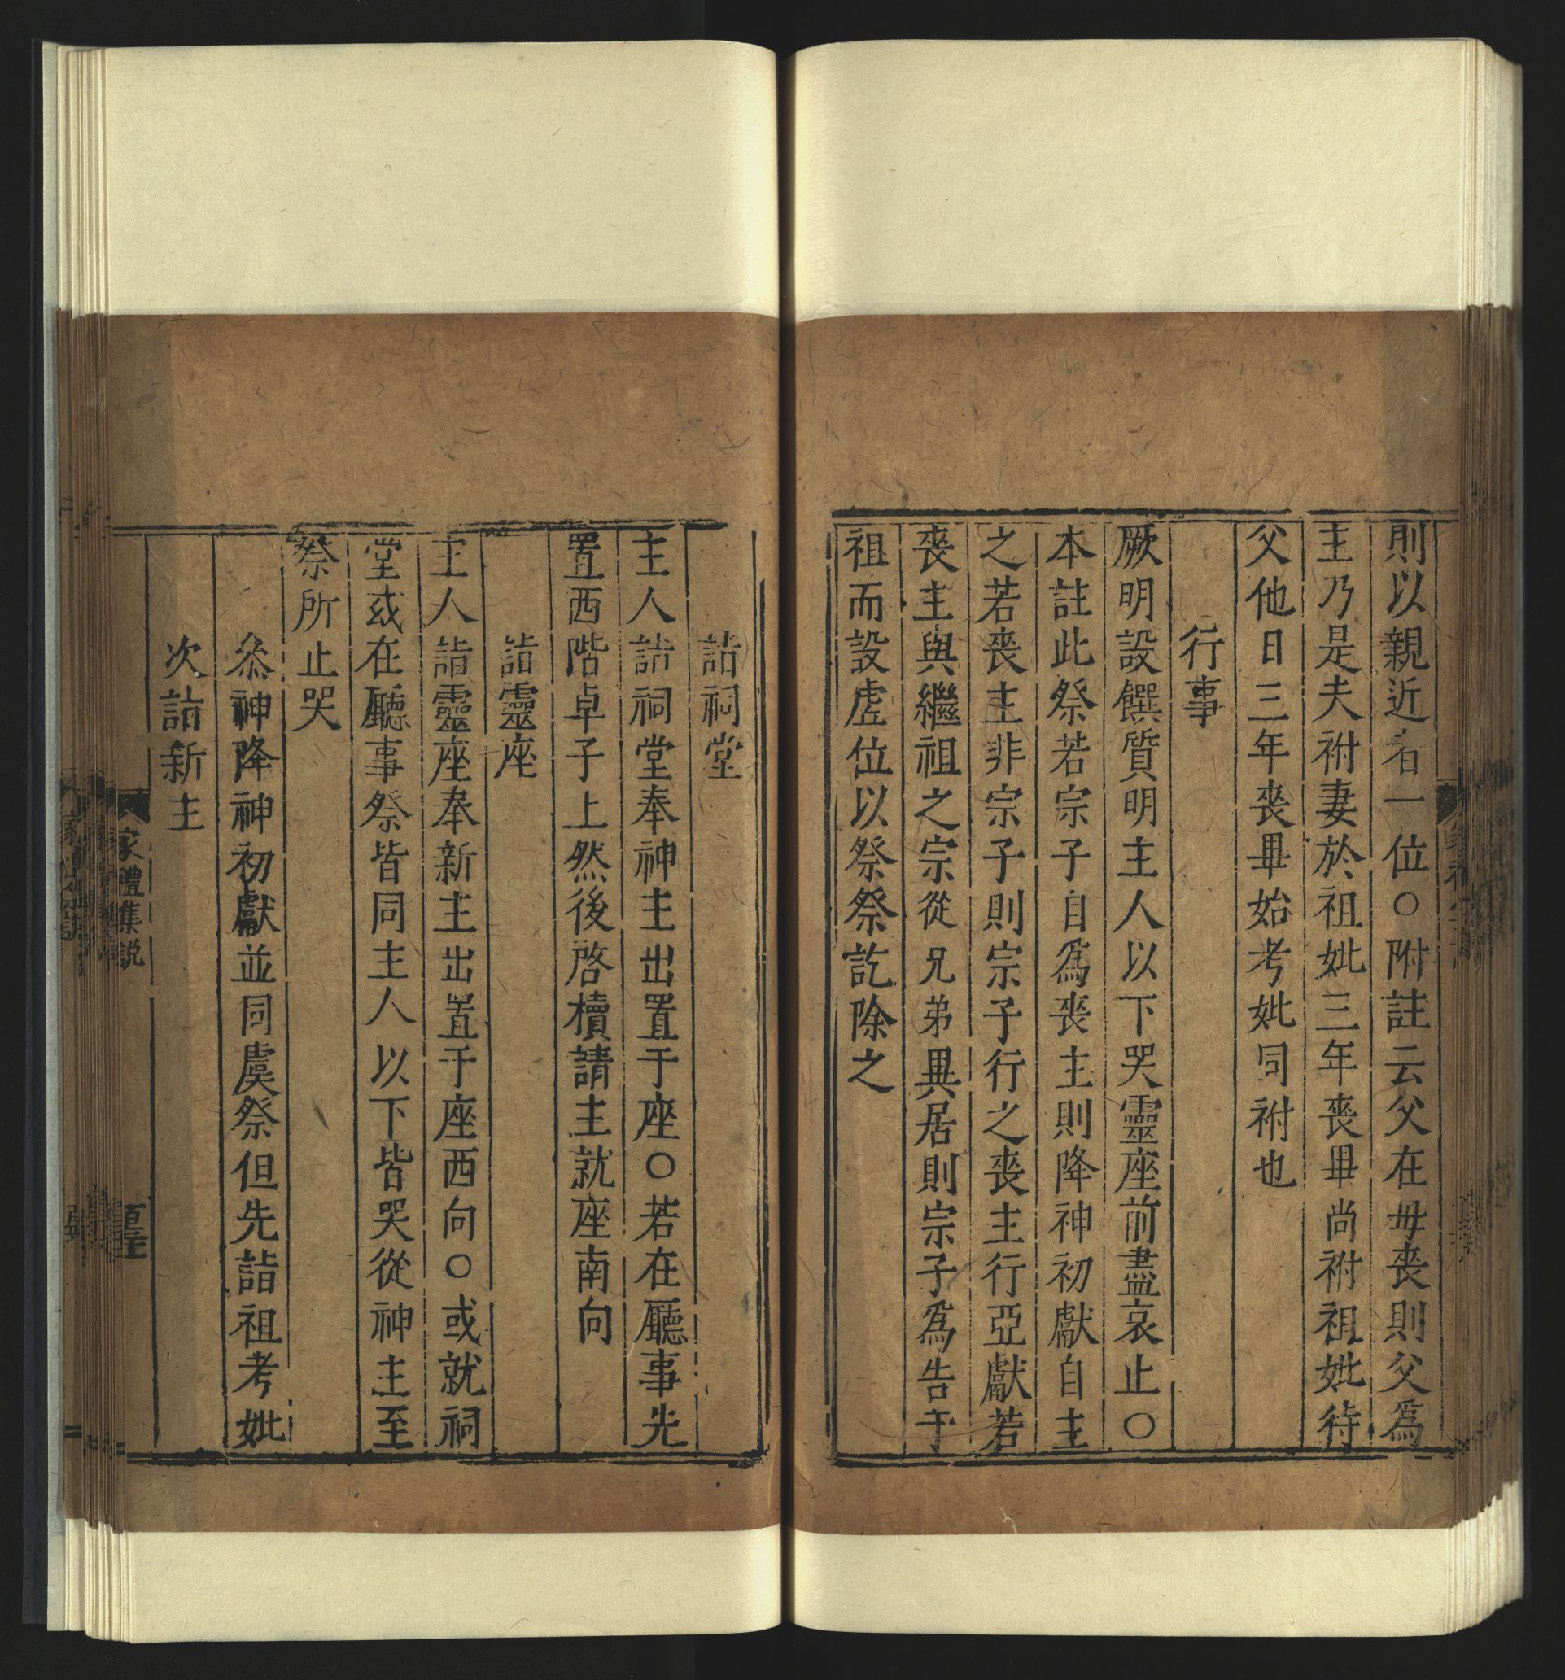 則以親近者一位○附註云父在毋喪則父爲
主乃是夫祔妻於祖妣三年喪畢尚祔祖妣待
父他日三年喪畢始考妣同祔也
行事
厥明設饌質明主人以下哭靈座前盡哀止○
本註此祭若宗子自爲喪主則降神初獻自主
之若喪主非宗子則宗子行之喪主行亞獻若
喪主與繼祖之宗從兄弟異居則宗子爲告于
祖而設虛位以祭祭訖除之
詣祠堂
主人詣祠堂奉神主出置于座○若在廳事先
置西階卓子上然後啓櫝請主就座南向
詣靈座
主人詣靈座奉新主出置于座西向○或就祠
堂或在廳事祭皆同主人以下皆哭從神主至
祭所止哭
叅神降神初獻並同虞祭但先詣祖考妣
次詣新主
家禮集說